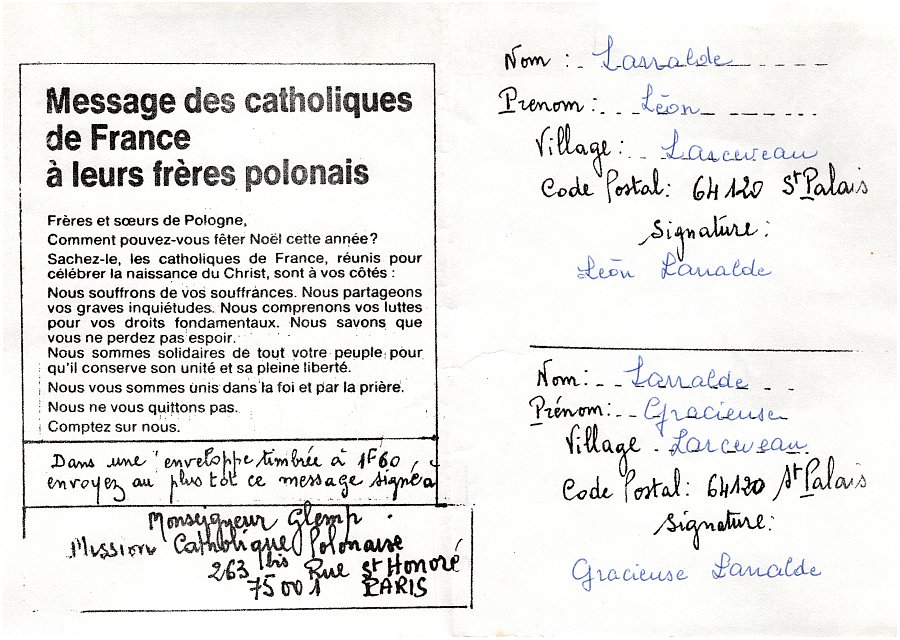 Message des catholiques
de France
à leurs frères polonais
Frères et sœurs de Pologne,
Comment pouvez-vous fêter Noël cette année?
Sachez-le, les catholiques de France, réunis pour
célébrer la naissance du Christ, sont à vos côtés :
Nous souffrons de vos souffrances. Nous partageons
vos graves inquiétudes. Nous comprenons vos luttes
pour vos droits fondamentaux. Nous savons que
vous ne perdez pas espoir.
Nous sommes solidaires de tout votre peuple pour
qu'il conserve son unité et sa pleine liberté.
Nous vous sommes unis dans la foi et par la prière.
Nous ne vous quittons pas.
Comptez sur nous.
Dans une enveloppe timbrée à 1F60
envoyez au plus tôt ce message signé à
Monseigneur Glemp
Mission Catholique Polonaise
263 bis Rue St Honoré
75001 PARIS
Nom : Larralde
Prenom : Léon
Village : Larceveau
Code Postal : 64120 St Palais
Signature :
Léon Larralde
Nom : Larralde
Prénom : Gracieuse
Village . Larceveau
Code Postal : 64120 St Palais
Signature :
Gracieuse Larralde